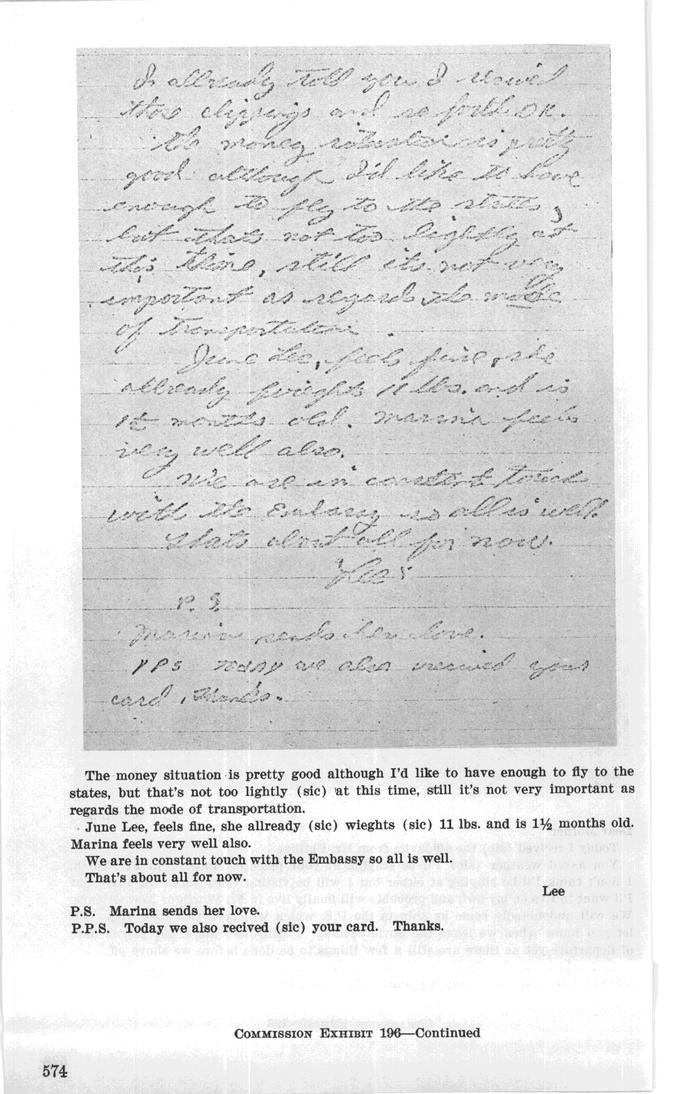 I allready told you I recived
those clippings and so forth OK.
The money situation is pretty
good although I'd like to have
enough to fly to the states,
but thats not too lightly at
this time, still its not very
important as regards the mode
of transportation.
June Lee, feels fine, she
allready wieghts 11 lbs. and is
1½ months old. Marina feels
very well also.
We are in constant touch
with the Embassy so all is well.
thats about all for now.
Lee
P.S.
Marina sends her love.
PPS Today we also recived your
card, thanks.
The money situation is pretty good although I'd like to have enough to fly to the
states, but that's not too lightly (sic) at this time, still it's not very important as
regards the mode of transportation.
June Lee, feels fine, she allready (sic) wieghts (sic) 11 lbs. and is 1½ months old.
Marina feels very well also.
We are in constant touch with the Embassy so all is well.
That's about all for now.
Lee
P.S. Marina sends her love.
P.P.S. Today we also recived (sic) your card. Thanks.
COMMISSION EXHIBIT 196—Continued
574